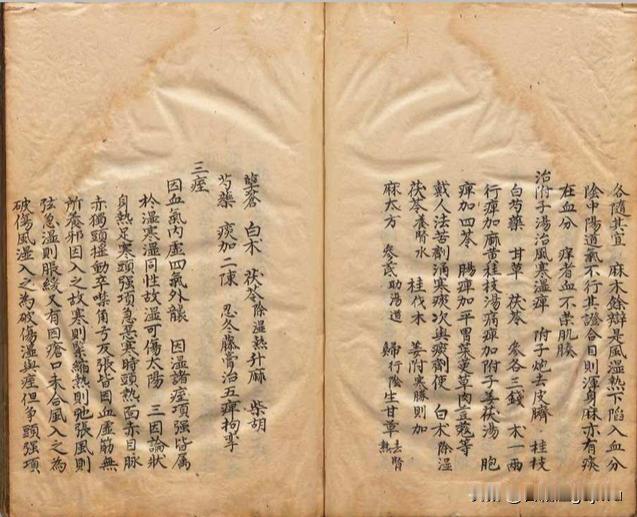 各隨其宜　麻木餘辯是風濕熱下陷入血分
陰中陽道氣不行其證合目則渾身麻亦有痰
在血分　痒者血不荣肌腠
治附子湯治風寒濕痺　附子炮去皮臍　桂枝
白芍藥　甘草　茯苓　參各三錢　朮一兩
行痺加麻黄桂枝湯痛痺加附子姜茯湯　胞
痺加四苓　腸痺加平胃茱萸草肉豆蔻等
戴人法苦劑涌寒痰次與痰劑使　白朮除湿
茯苓養腎水　桂伐木　姜附寒勝則加
麻太方　參芪助陽道　歸行陰生甘草去腎熱
蒼　白朮　茯苓除湿熱升麻　柴胡
芍藥　痰加二陳　忍冬藤膏治五痺拘攣
三痓
因血氣内虚四氣外襲　因濕諸痓項强皆属
於濕寒濕同性故濕可傷太陽　三因論状
身熱足寒頭强項急畏寒時頭熱面赤目脉
赤獨頭揺動卒噤角弓反張皆因血虚筋無
所養邪因入之故寒則紧縮熱則弛張風則
弦急濕則脹緩又有因瘡口未合風入之為
破傷風濕入之為破傷濕與痓但爭頭强項